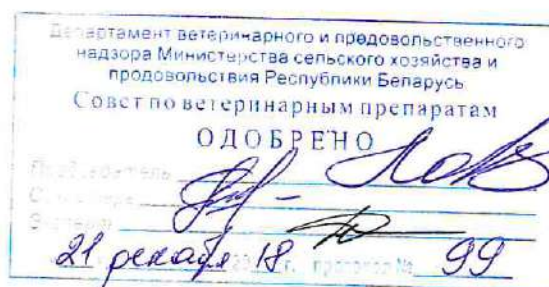 Департамент ветеринарного и продовольственного
надзора Министерства сельского хозяйства и
продовольствия Республики Беларусь
Совет по ветеринарным препаратам
ОДОБРЕНО
Председатель
Эксперт
21 декабря 2018 г. протокол № 99